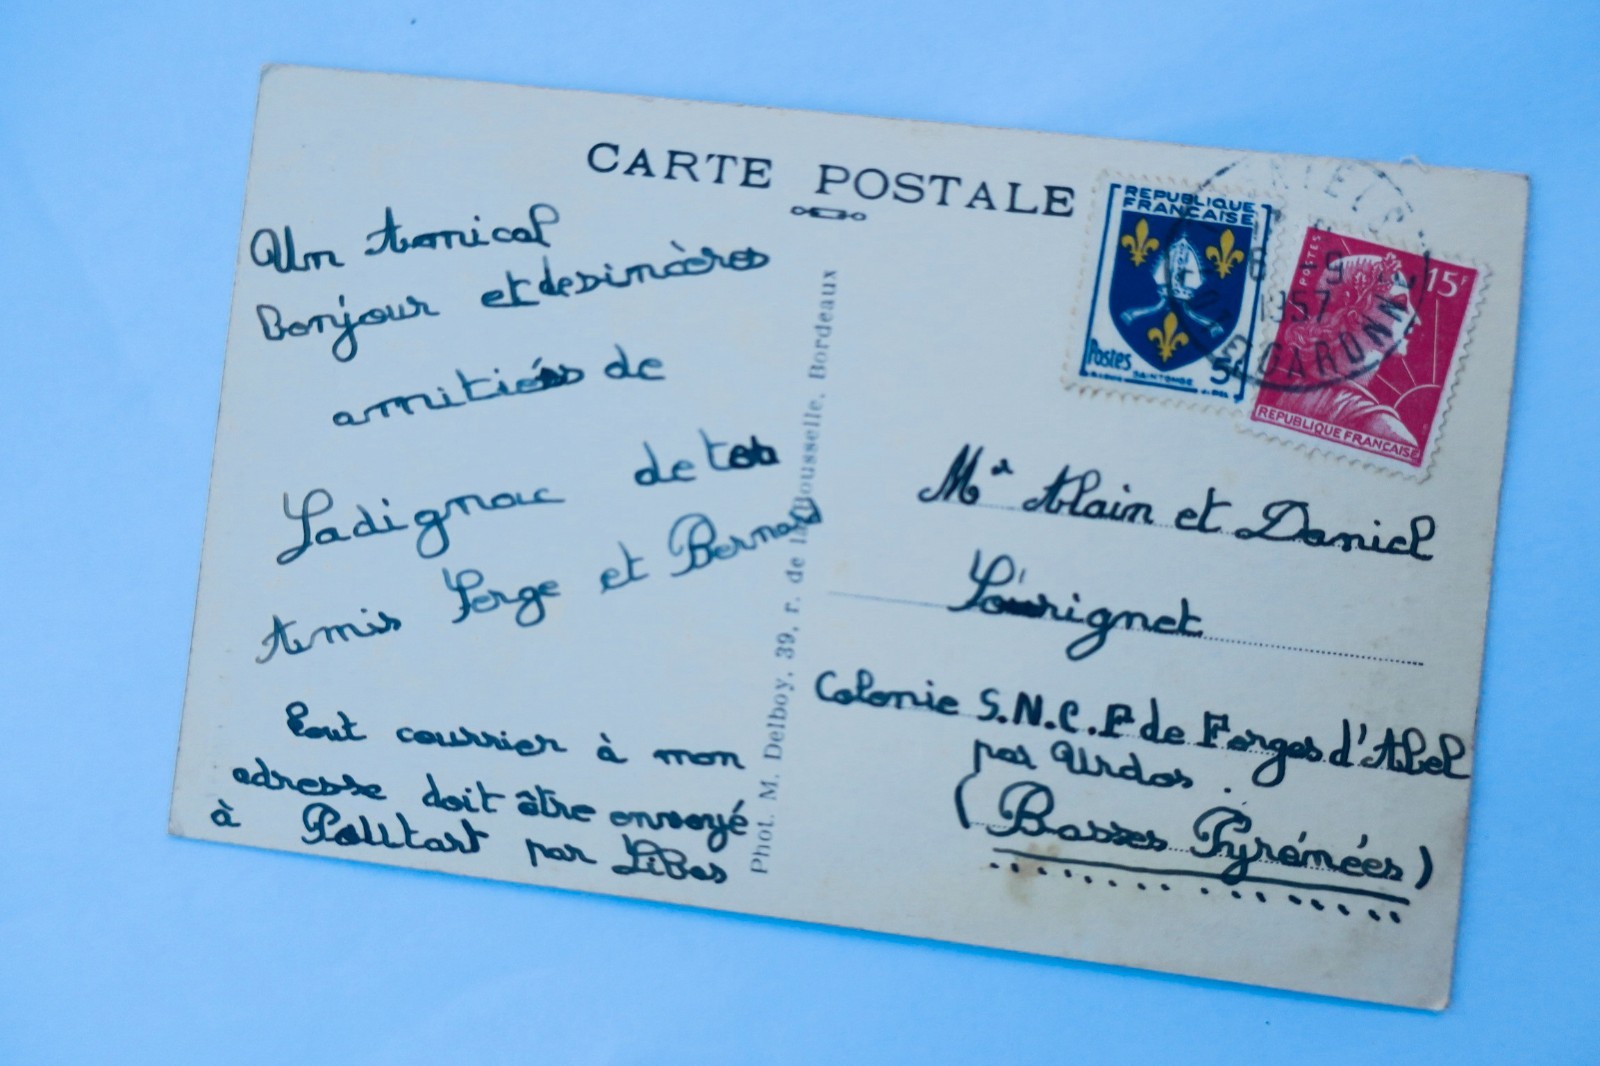 CARTE POSTALE
Un Amical
Bonjour et desincères
amitiés de
Ladignac de tes
Amis Serge et Bernard
tout courrier à mon
adresse doit être envoyé
à par Libos
Phot. M. Delboy, 39, r. de la Rousselle, Bordeaux
REPUBLIQUE
FRANÇAISE
Postes
5F
SAINTONGE
POSTES
15F
REPUBLIQUE FRANCAISE
-9
1957
GARONNE
Mr Alain et Daniel
Colonie S.N.C.F de Forges d'Abel
par Urdos.
(Basses Pyrénées)